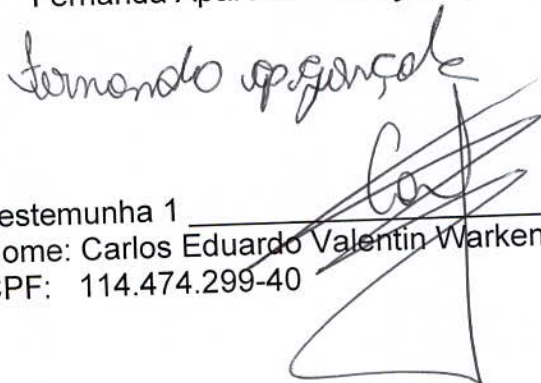 Fernanda
Fernanda ap. Gonçal
estemunha 1
ome: Carlos Eduardo Valentin Warken
CPF: 114.474.299-40